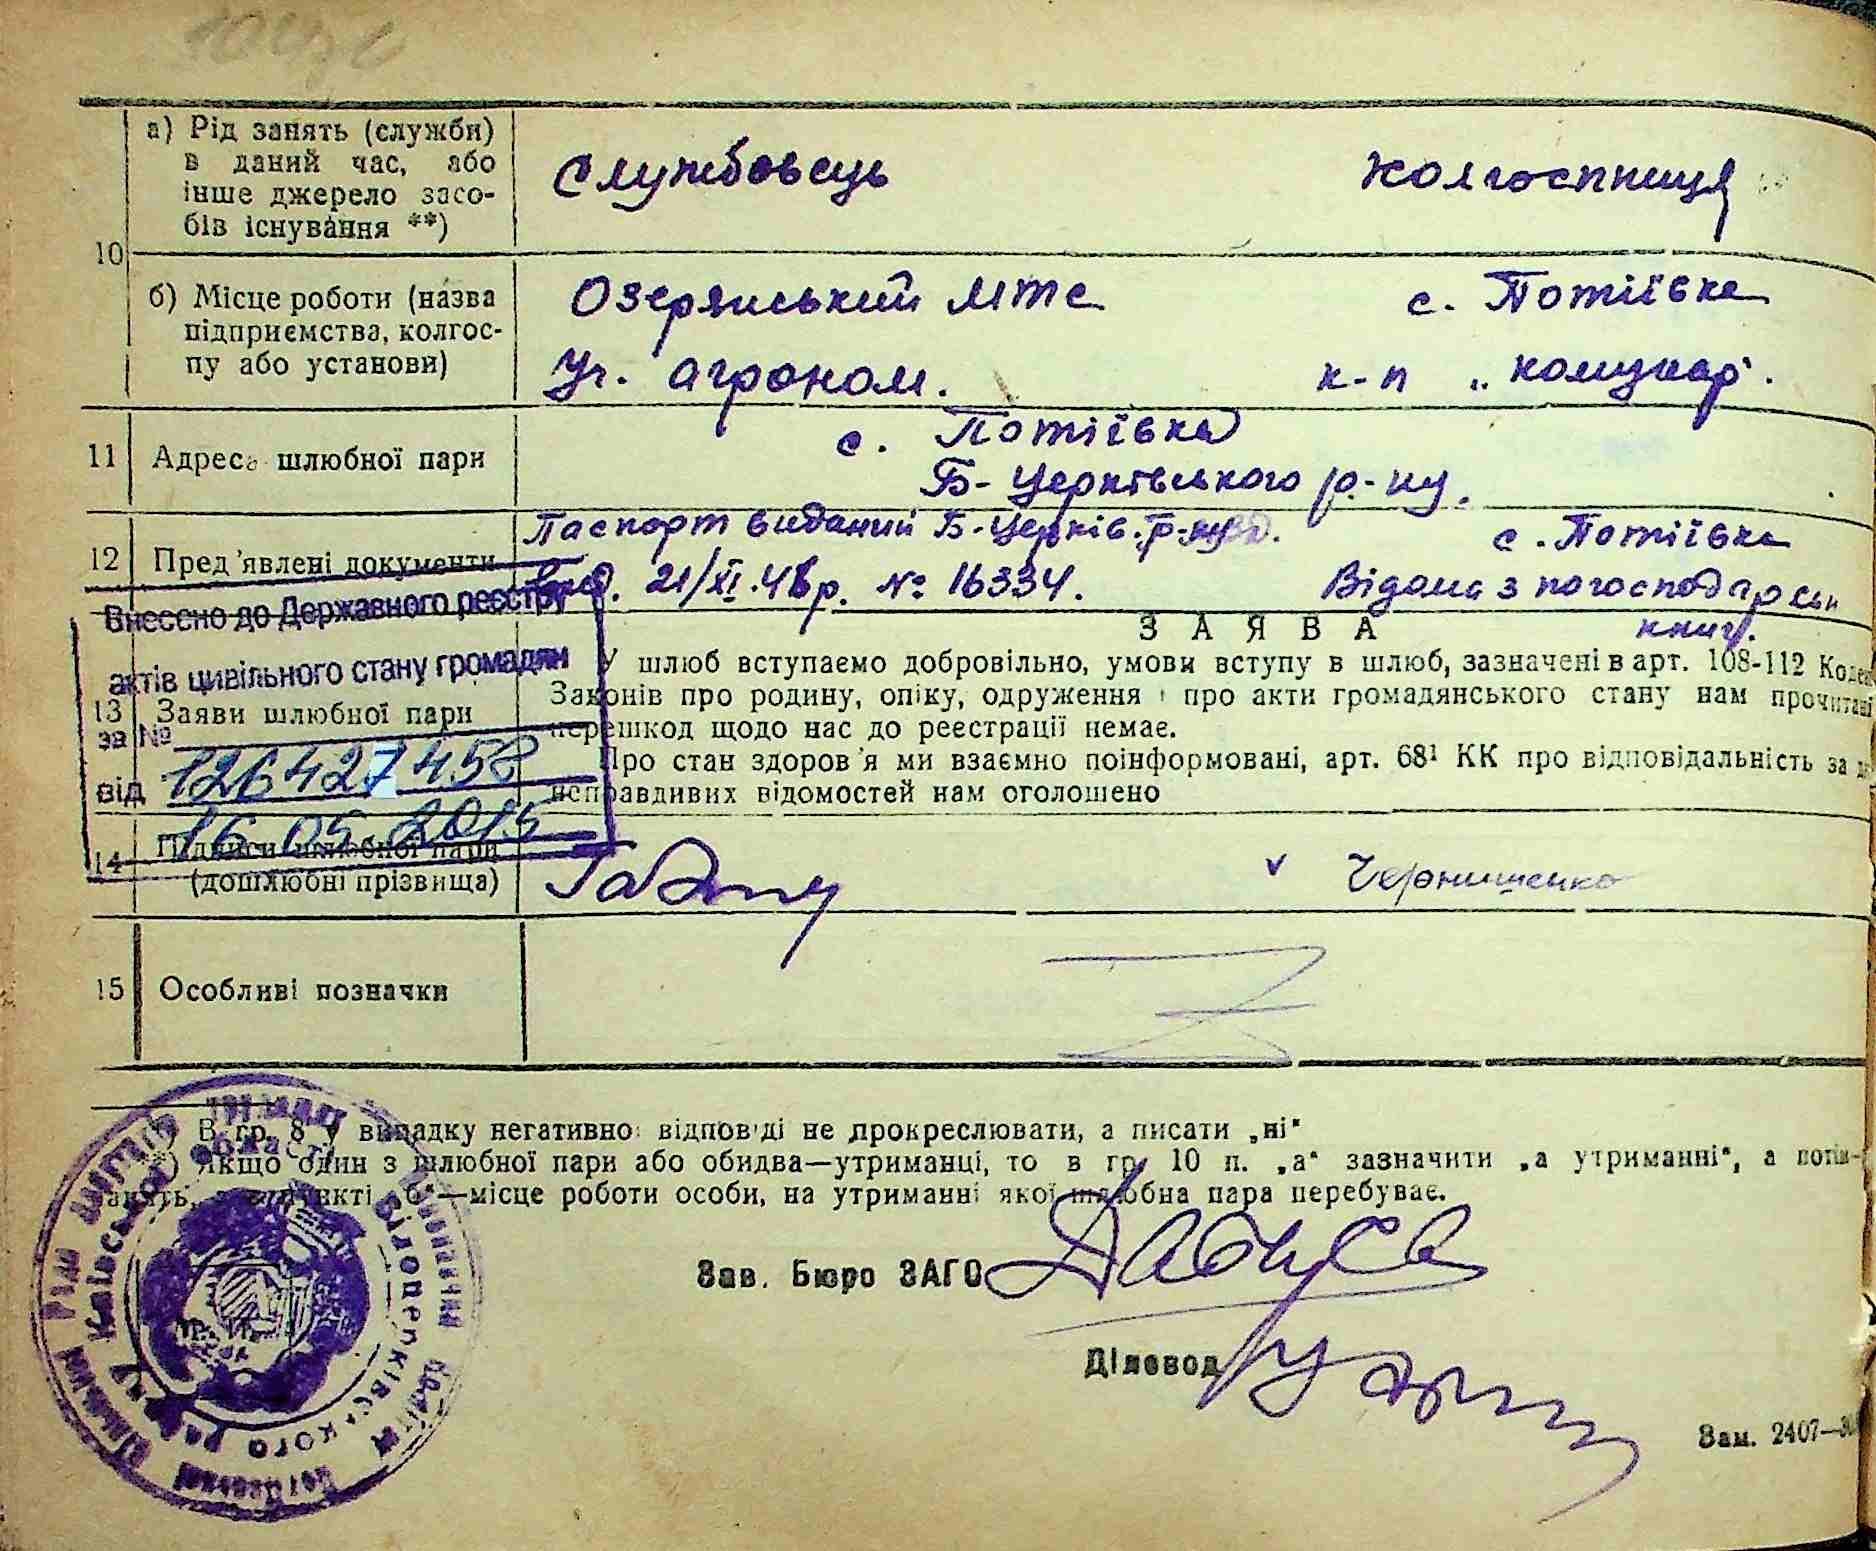 а) Рід занять (служби)
в даний час, або
інше джерело засо-
бів існування **)
Службовець
Колгоспниця
10
б) Місце роботи (назва
підприємства, колгос-
пу або установи)
Озерянський МТС
с. Потіївка
Уч. агроном.
к-п „Комунар".
11
Адреса шлюбної пари
с. Потіївка
Б-Церківського р-ну.
12
Пред'явлені документи
Паспорт виданий Б-Церків.
21/XI.48р. № 16334.
с. Потіївка
Відома з погосподарськи
книг.
Внесено до Державного реєстру
актів цивільного стану громадян
за № 126427458
від 16.05.2015
13
Заяви шлюбної пари
ЗАЯВА
У шлюб вступаємо добровільно, умови вступу в шлюб, зазначені в арт. 108-112 Кодек
Законів про родину, опіку, одруження і про акти громадянського стану нам прочитані
перешкод щодо нас до реєстрації немає.
Про стан здоров'я ми взаємно поінформовані, арт. 68¹ КК про відповідальність за д
неправдивих відомостей нам оголошено
14
Підписи шлюбної пари
(дошлюбні прізвища)
v Чернишенко
15
Особливі позначки
*) В гр. 8 у випадку негативної відповіді не прокреслювати, а писати „ні"
**) Якщо один з шлюбної пари або обидва—утриманці, то в гр. 10 п. „а" зазначити „а утриманні", а потім
пункті „б"—місце роботи особи, на утриманні якої шлюбна пара перебуває.
Зав. Бюро ЗАГС
Діловод
Зам. 2407—30
Київської області
Білоцерківського району